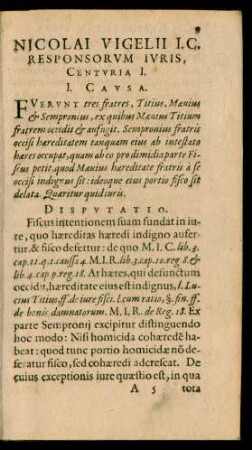 9
NICOLAI VIGELII I.C.
RESPONSORVM IVRIS,
CENTVRIA I.
I. CAVSA.
FVERVNT tres fratres, Titius, Mæuius
& Sempronius, ex quibus Mæuius Titium
fratrem occidit & aufugit. Sempronius fratris
occisi hæreditatem tanquam eius ab intestato
hæres occupat, quam ab eo pro dimidia parte Fi-
scus petit, quod Mæuius hæreditate fratris à se
occisi indignus sit: ideoque eius portio fisco sit
delata. Quæritur quid iuris.
DISPVTATIO.
Fiscus intentionem suam fundat in iu-
re, quo hæreditas hæredi indigno aufer-
tur, & fisco defertur: de quo M.I.C. lib. 3.
cap. 11. q. 1. caussa 4. M.I.R. lib. 3. cap. 10. reg 8. &
lib. 4. cap 9. reg. 18. At hæres, qui defunctum
occidit, hæreditate eius est indignus, l. Lu-
cius Titius, ff. de iure fisci. l. cum ratio, §. fin. ff.
de bonis damnatorum. M.I.R. de Reg. 18. Ex
parte Sempronij excipitur distinguendo
hoc modo: Nisi homicida cohæredē ha-
beat: quod tunc portio homicidæ nō de-
feratur fisco, sed cohæredi adcrescat. De
cuius exceptionis iure quæstio est, in qua
A 5 tota